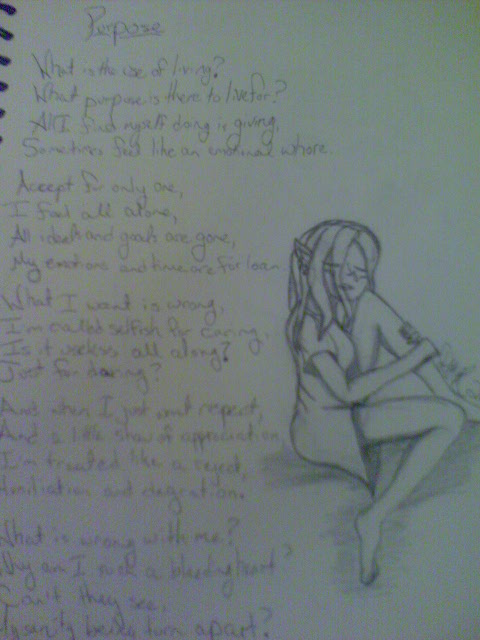 Purpose
What is the use of living?
What purpose is there to live for?
All I find myself doing is giving,
Sometimes feel like an emotional whore.
Accept for only one,
I feel all alone,
All ideals and goals are gone,
My emotions and time are for loan.
What I want is wrong,
I'm called selfish for caring,
Is it useless all along?
Just for daring?
And when I just want respect,
And a little show of appreciation,
I'm treated like a reject,
Humiliation and degration.
What is wrong with me?
Why am I such a bleeding heart?
Can't they see,
My sanity being turn apart?